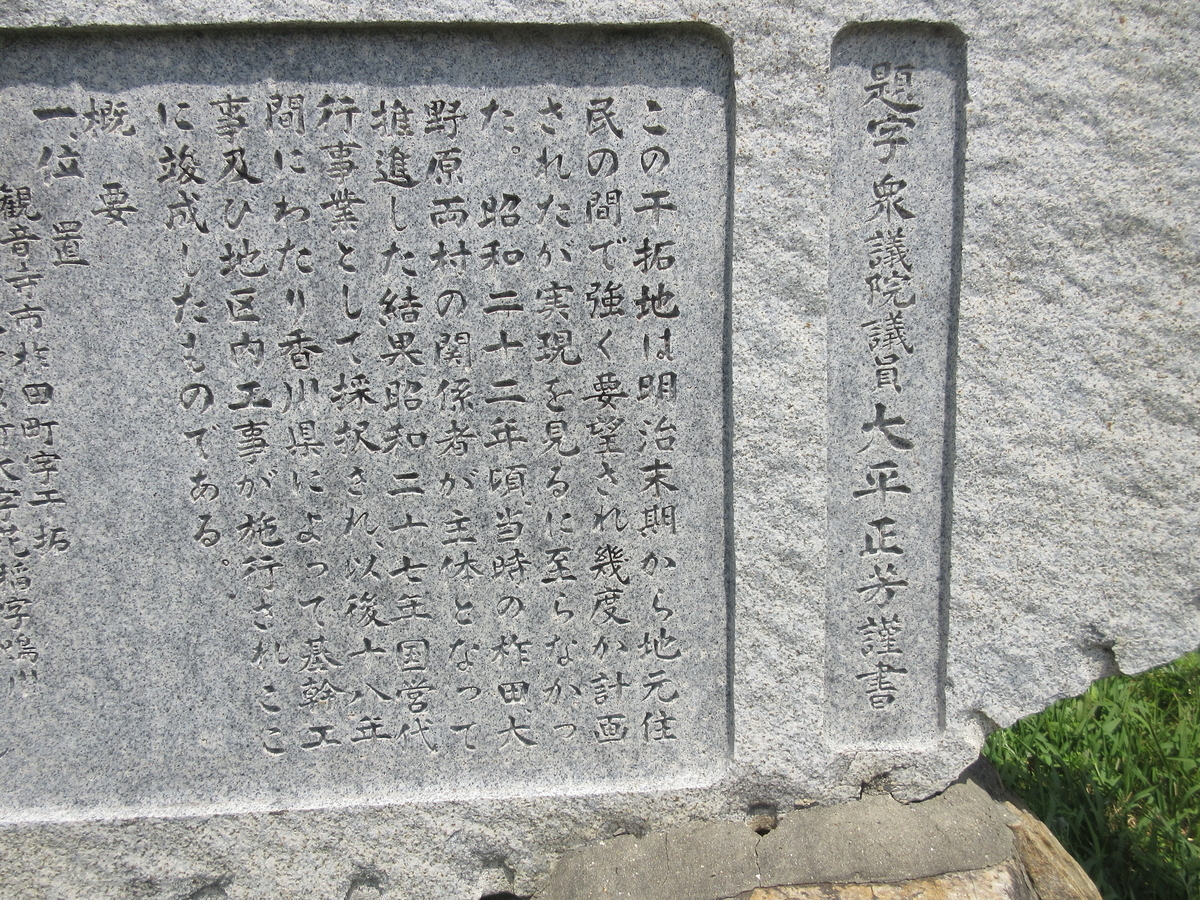 題字 衆議院議員 大平正芳謹書
この干拓地は明治末期から地元住
民の間で強く要望され幾度か計画
されたが実現を見るに至らなかっ
た。昭和二十二年頃、当時の柞田、大
野原両村の関係者が主体となって
推進した結果昭和二十七年国営代
行事業として採択され、以後十八年
間にわたり香川県によって基幹工
事及び地区内工事が施行されここ
に竣成したものである。
概要
一、位置
観音寺市柞田町字干拓
町大字花稲字鳴川